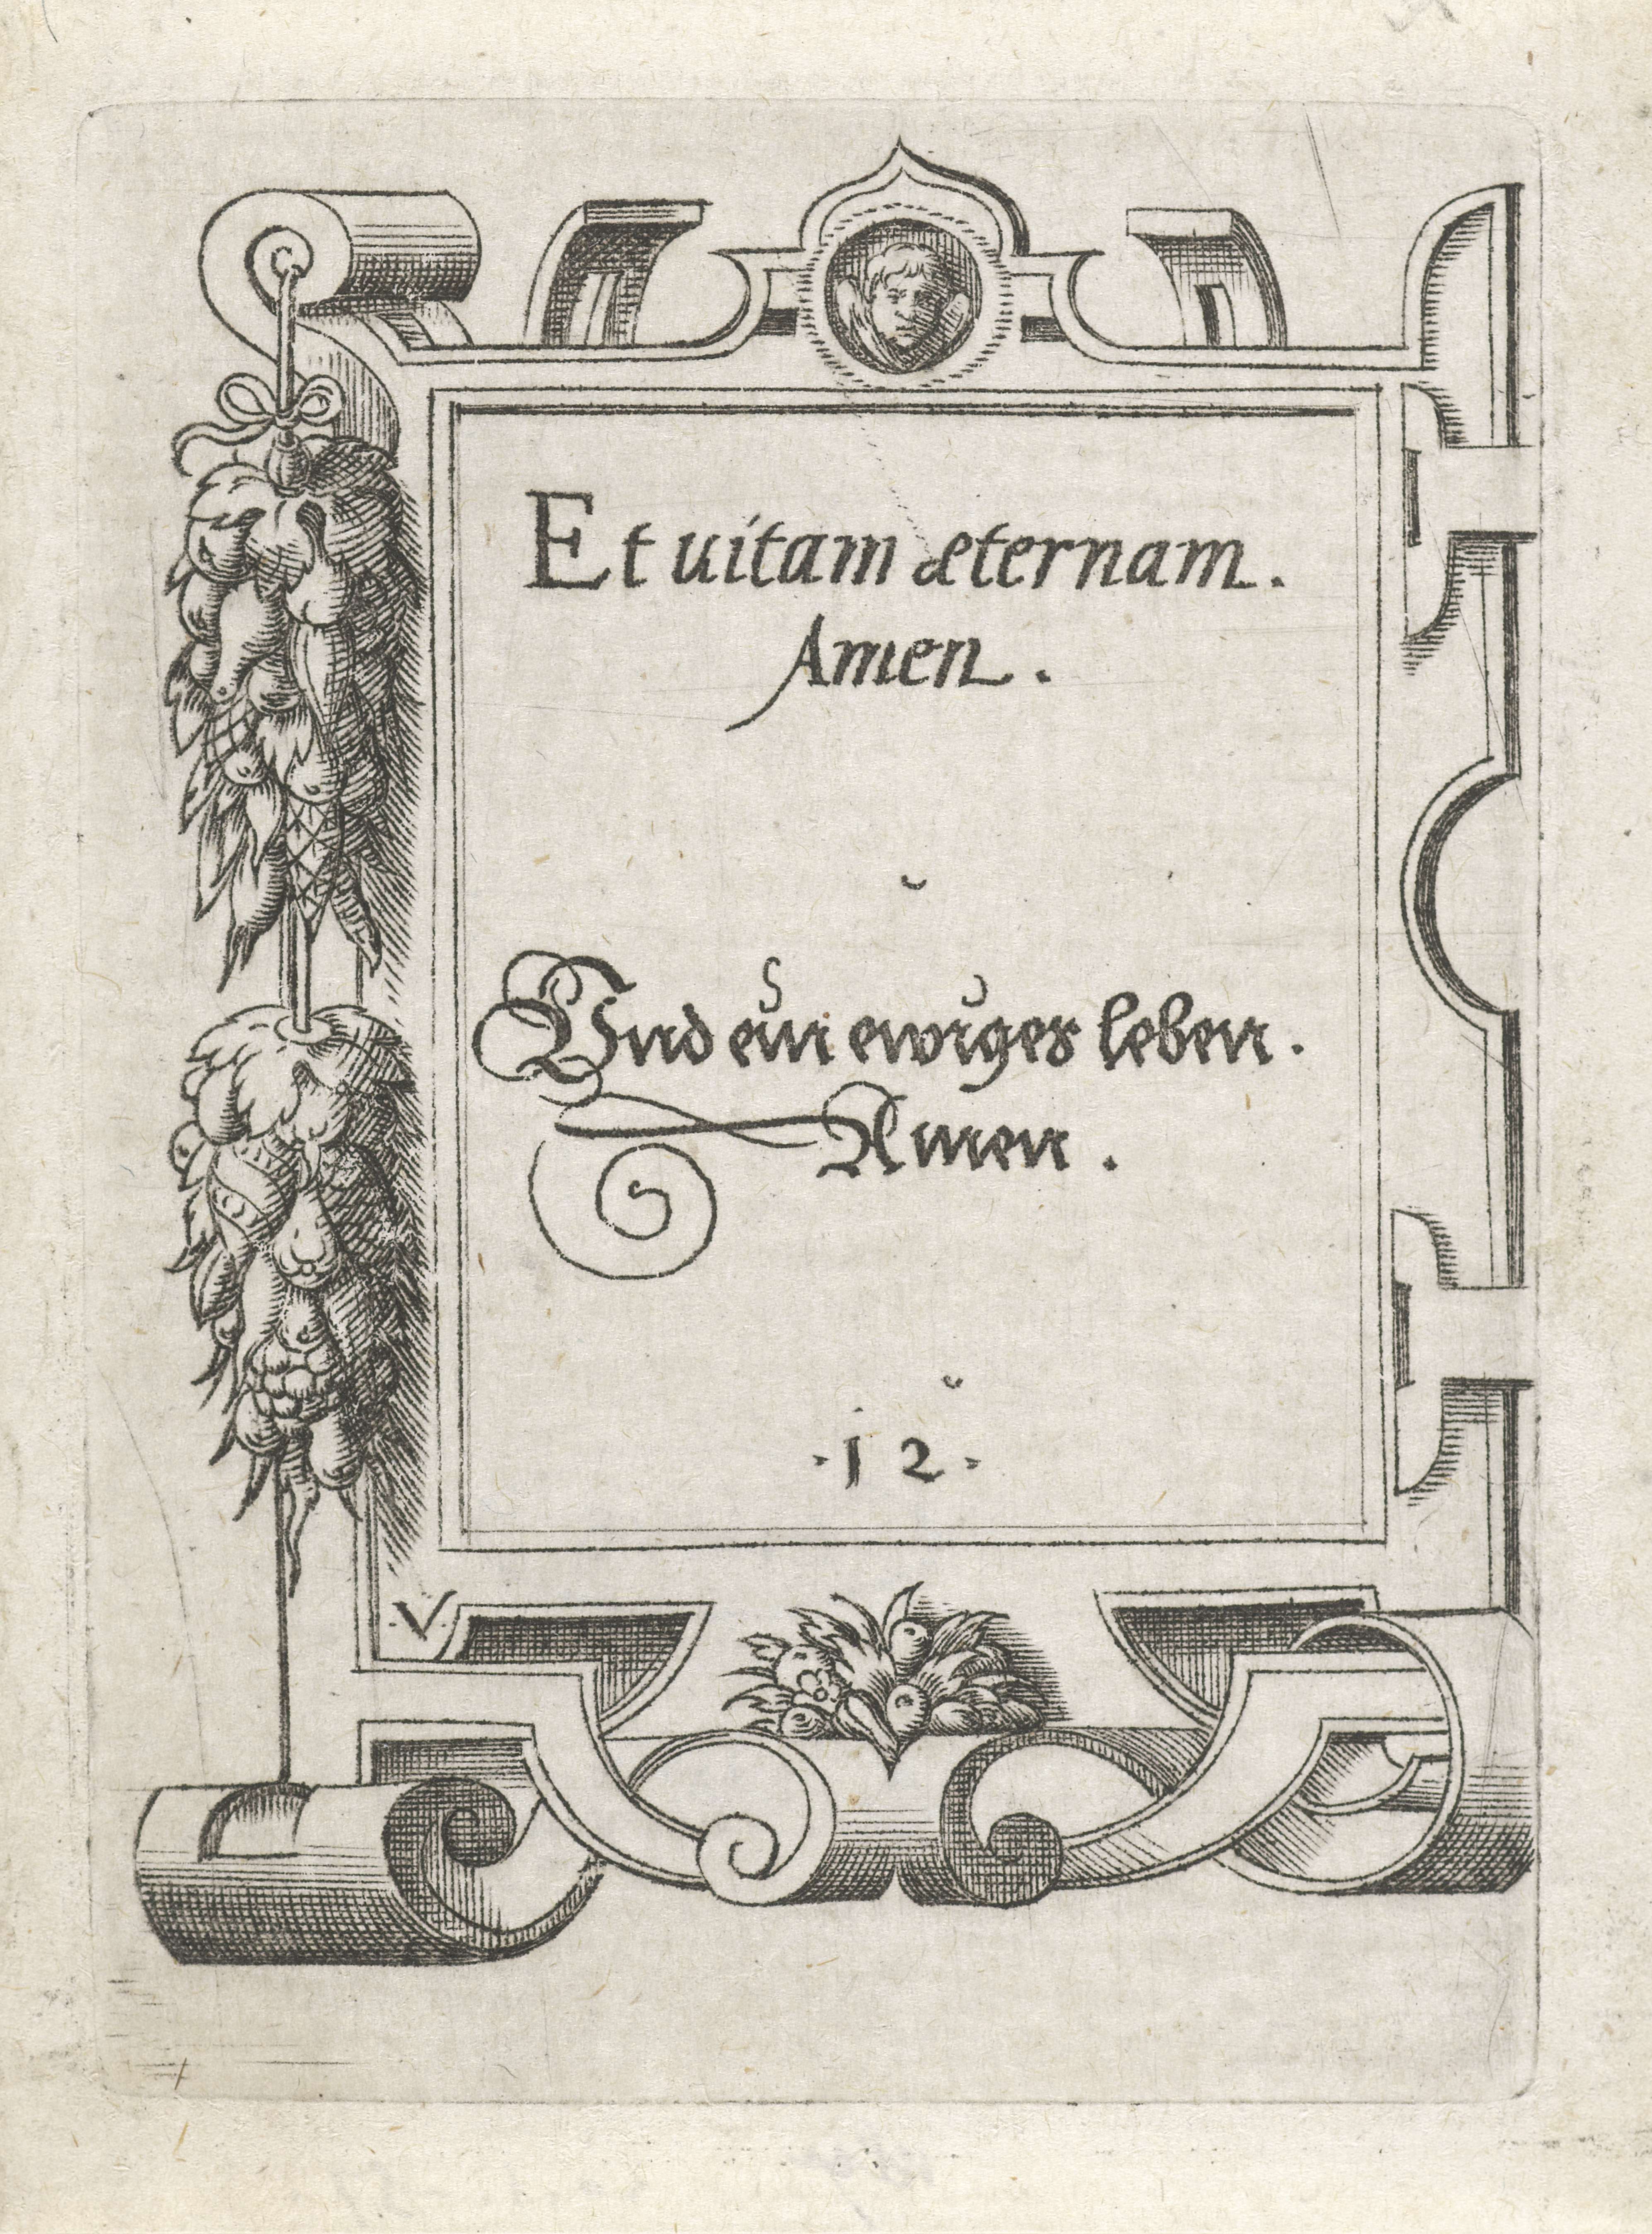 Et uitam æternam.
Amen.
Vnd ein ewiges leben.
Amen.
·12·
V